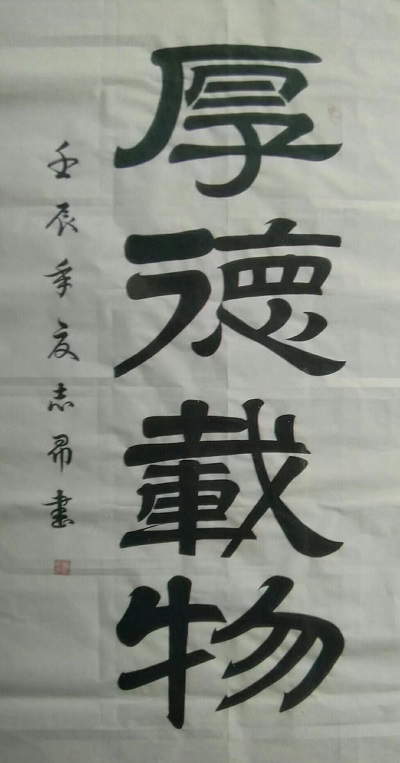 厚德載物
壬辰年夏志昂書